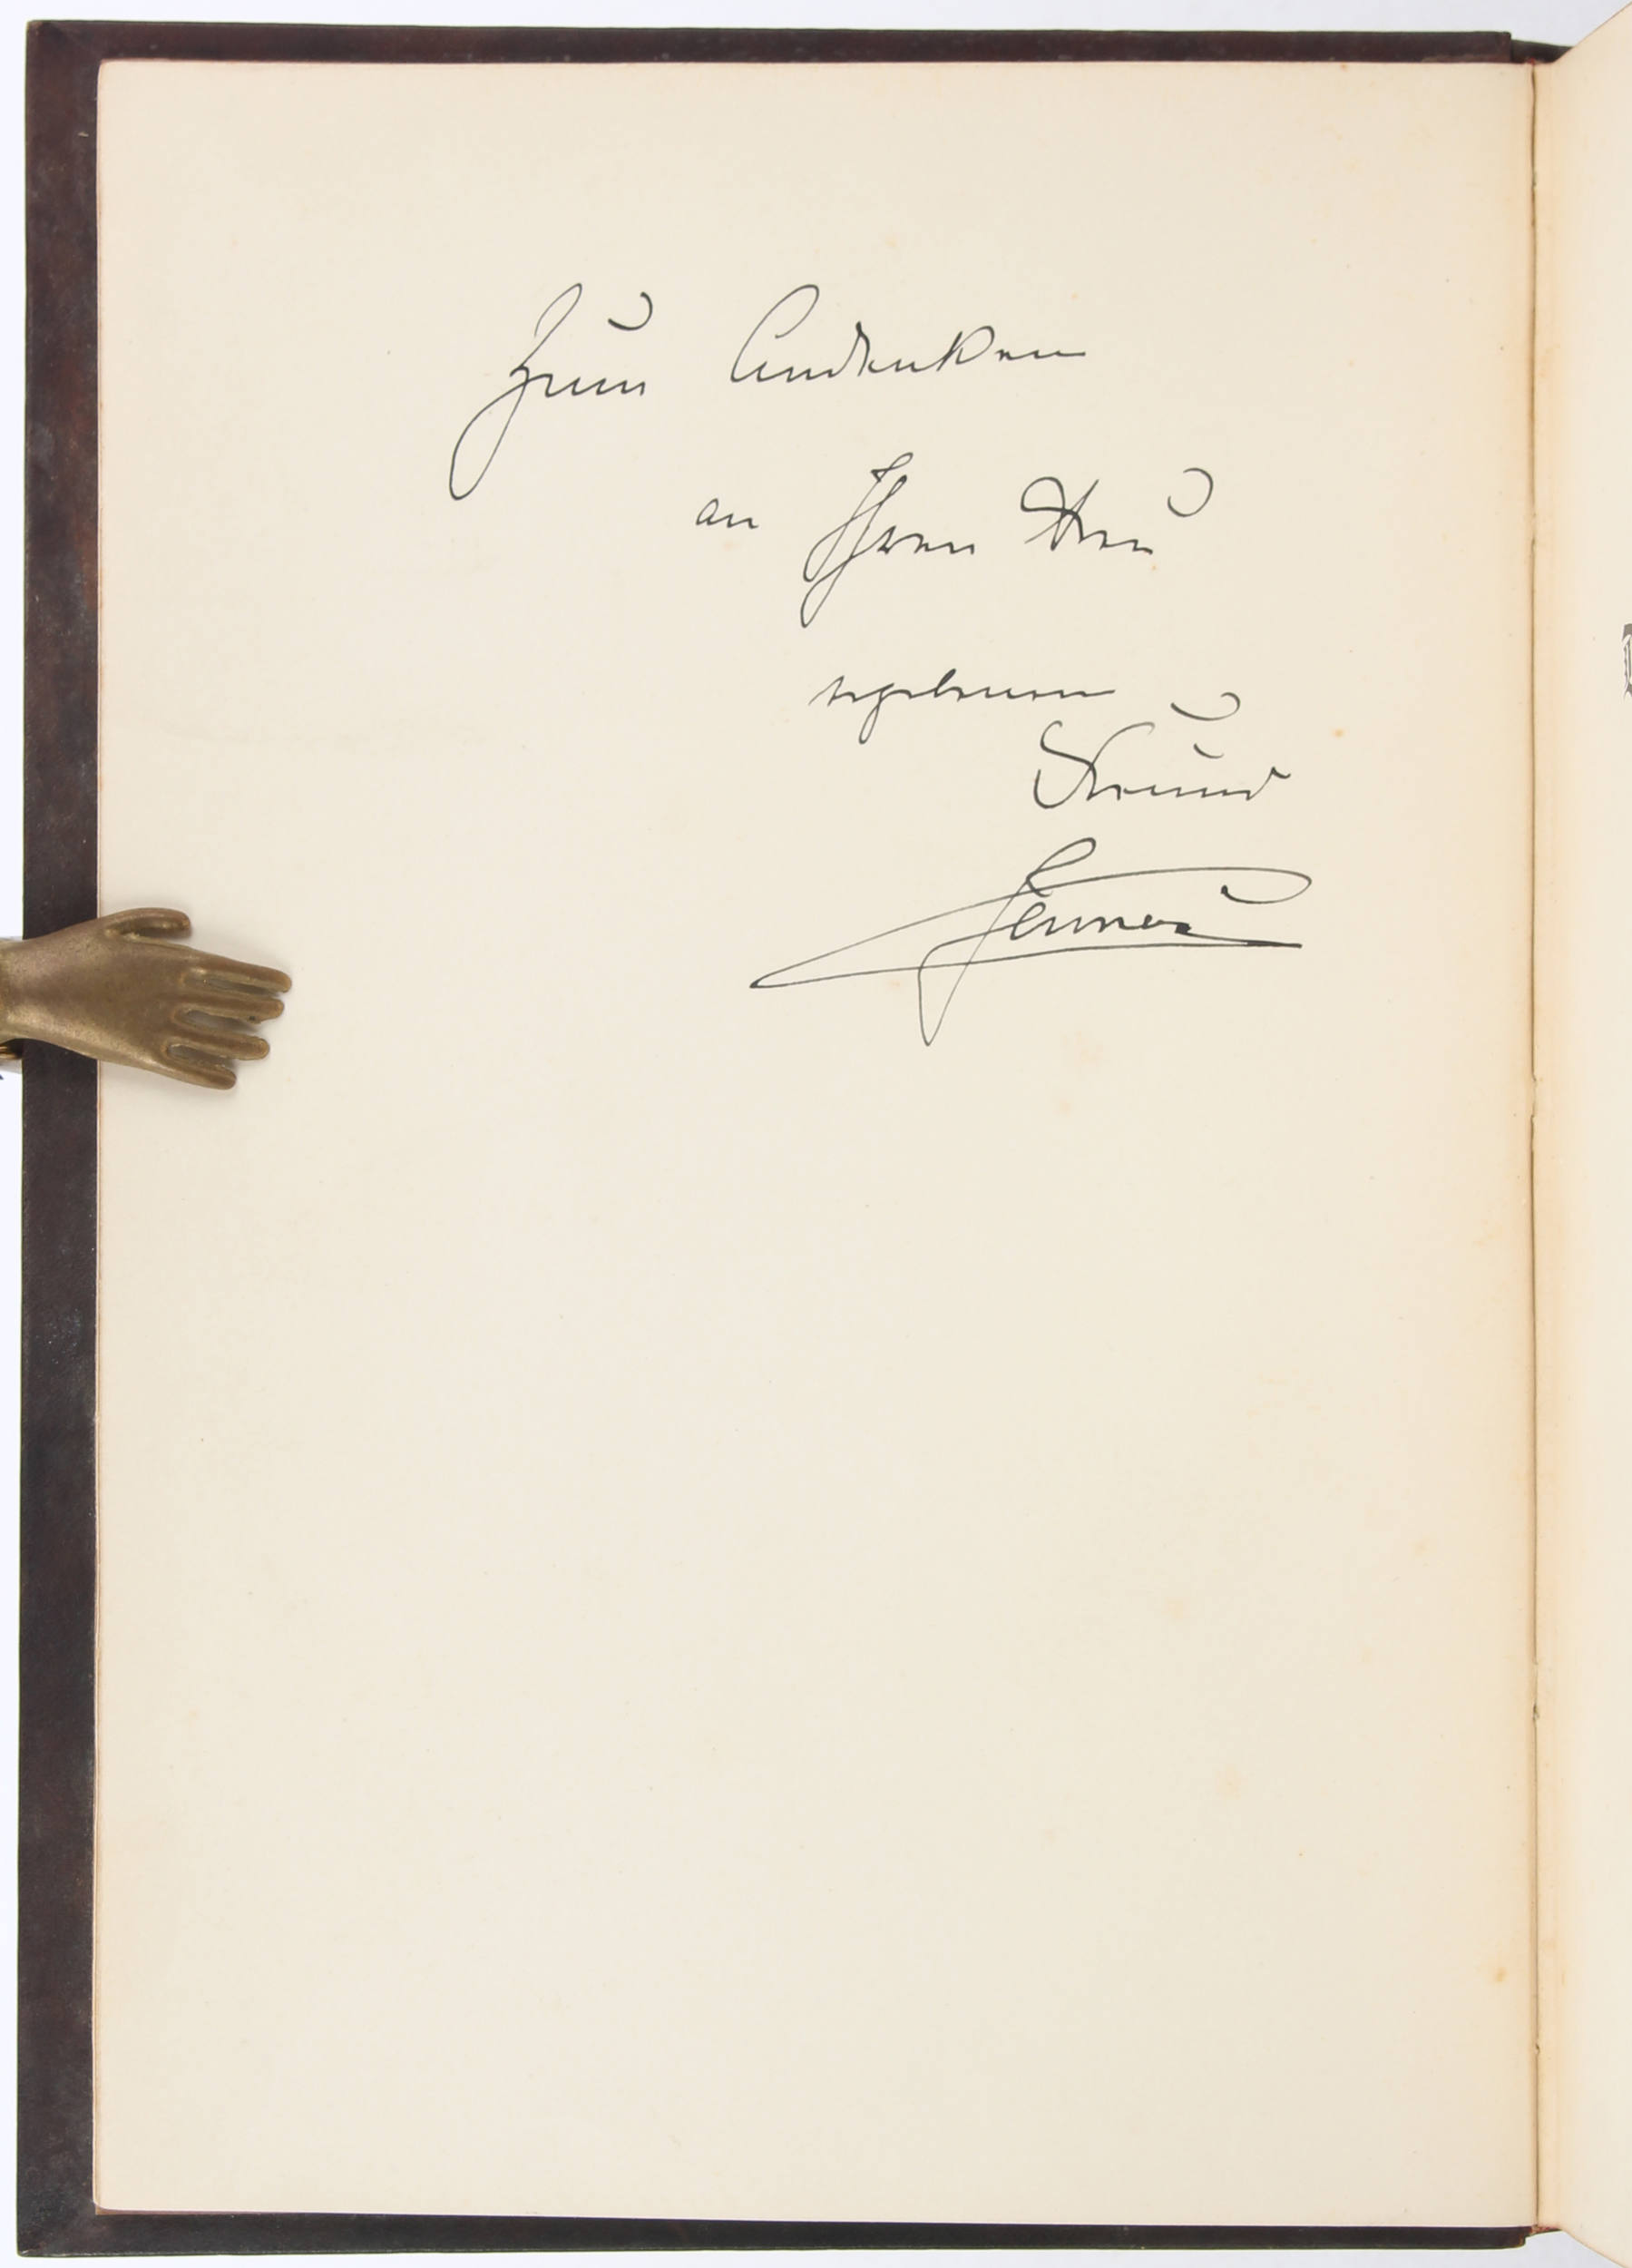 Zum Andenken
an Ihren treu
ergebenen
Freund